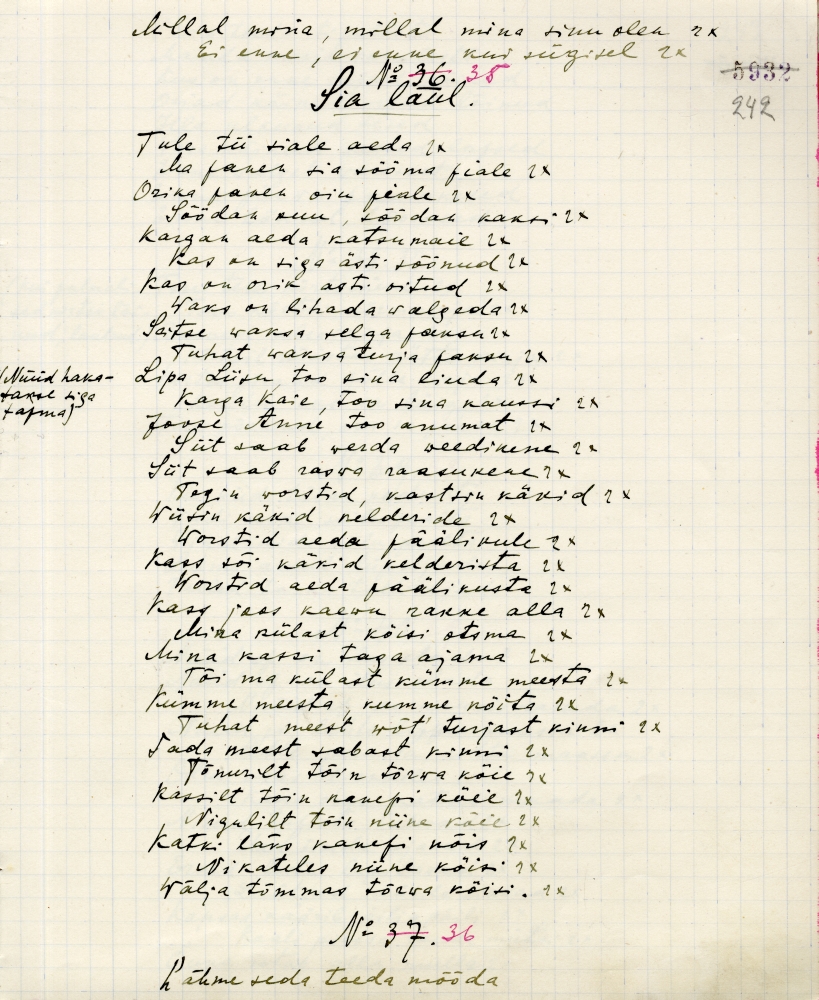 Millal mina, millal mina sinu olen 2x
Ei enne, ei enne kui sügisel 2x
5932
242
No 36. 35
Sia laul.
Tule tii siale aeda 2x
Ma panen sia sööma piale 2x
Orika panen oiu peale 2x
Söödan kuu, söödan kaksi 2x
Kargan aeda katsumaie 2x
Kas on siga ästi söönud 2x
Kas on orik asti oitud 2x
Waks on lihada walgeda 2x
Seitse waksa selga paksu 2x
Tuhat waksa turja paksu 2x
(Nüüd haka-
takse siga
tapma)
Lipa Liisu, too sina liuda 2x
Karga Kaie, too sina kaussi 2x
Joose Anne too anumat 2x
Siit saab werda weedikene 2x
Siit saab raswa raasukene 2x
Tegin worstid, kastsin käkid 2x
Wiisin käkid kelderide 2x
Worstid aeda päälikule 2x
Kass sõi käkid kelderista 2x
Worstid aeda päälikusta 2x
Kass joos kaewu rakke alla 2x
Mina külast köisi otsma 2x
Mina kassi taga ajama 2x
Tõi ma külast kümme meesta 2x
Kümme meesta, kumme köita 2x
Tuhat meest wõt' turjast kinni 2x
Sada meest sabast kinni 2x
Tõnurilt tõin tõrwa köie 2x
Kassilt tõin kanepi köie 2x
Nigulilt tõin niine köie 2x
Katki läks kanepi köis 2x
Nikateles niine köisi 2x
Wälja tõmmas tõrwa köisi. 2x
No 37. 36
Lähme seda teeda mööda